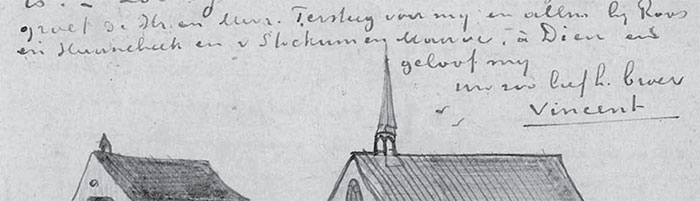 groet de Hr. en Mevr. Tersteeg voor mij en allen bij Roos
en Haanebeek en v Stockum en Mauve, à Dieu en
geloof mij
uw zoo liefh. broer
Vincent